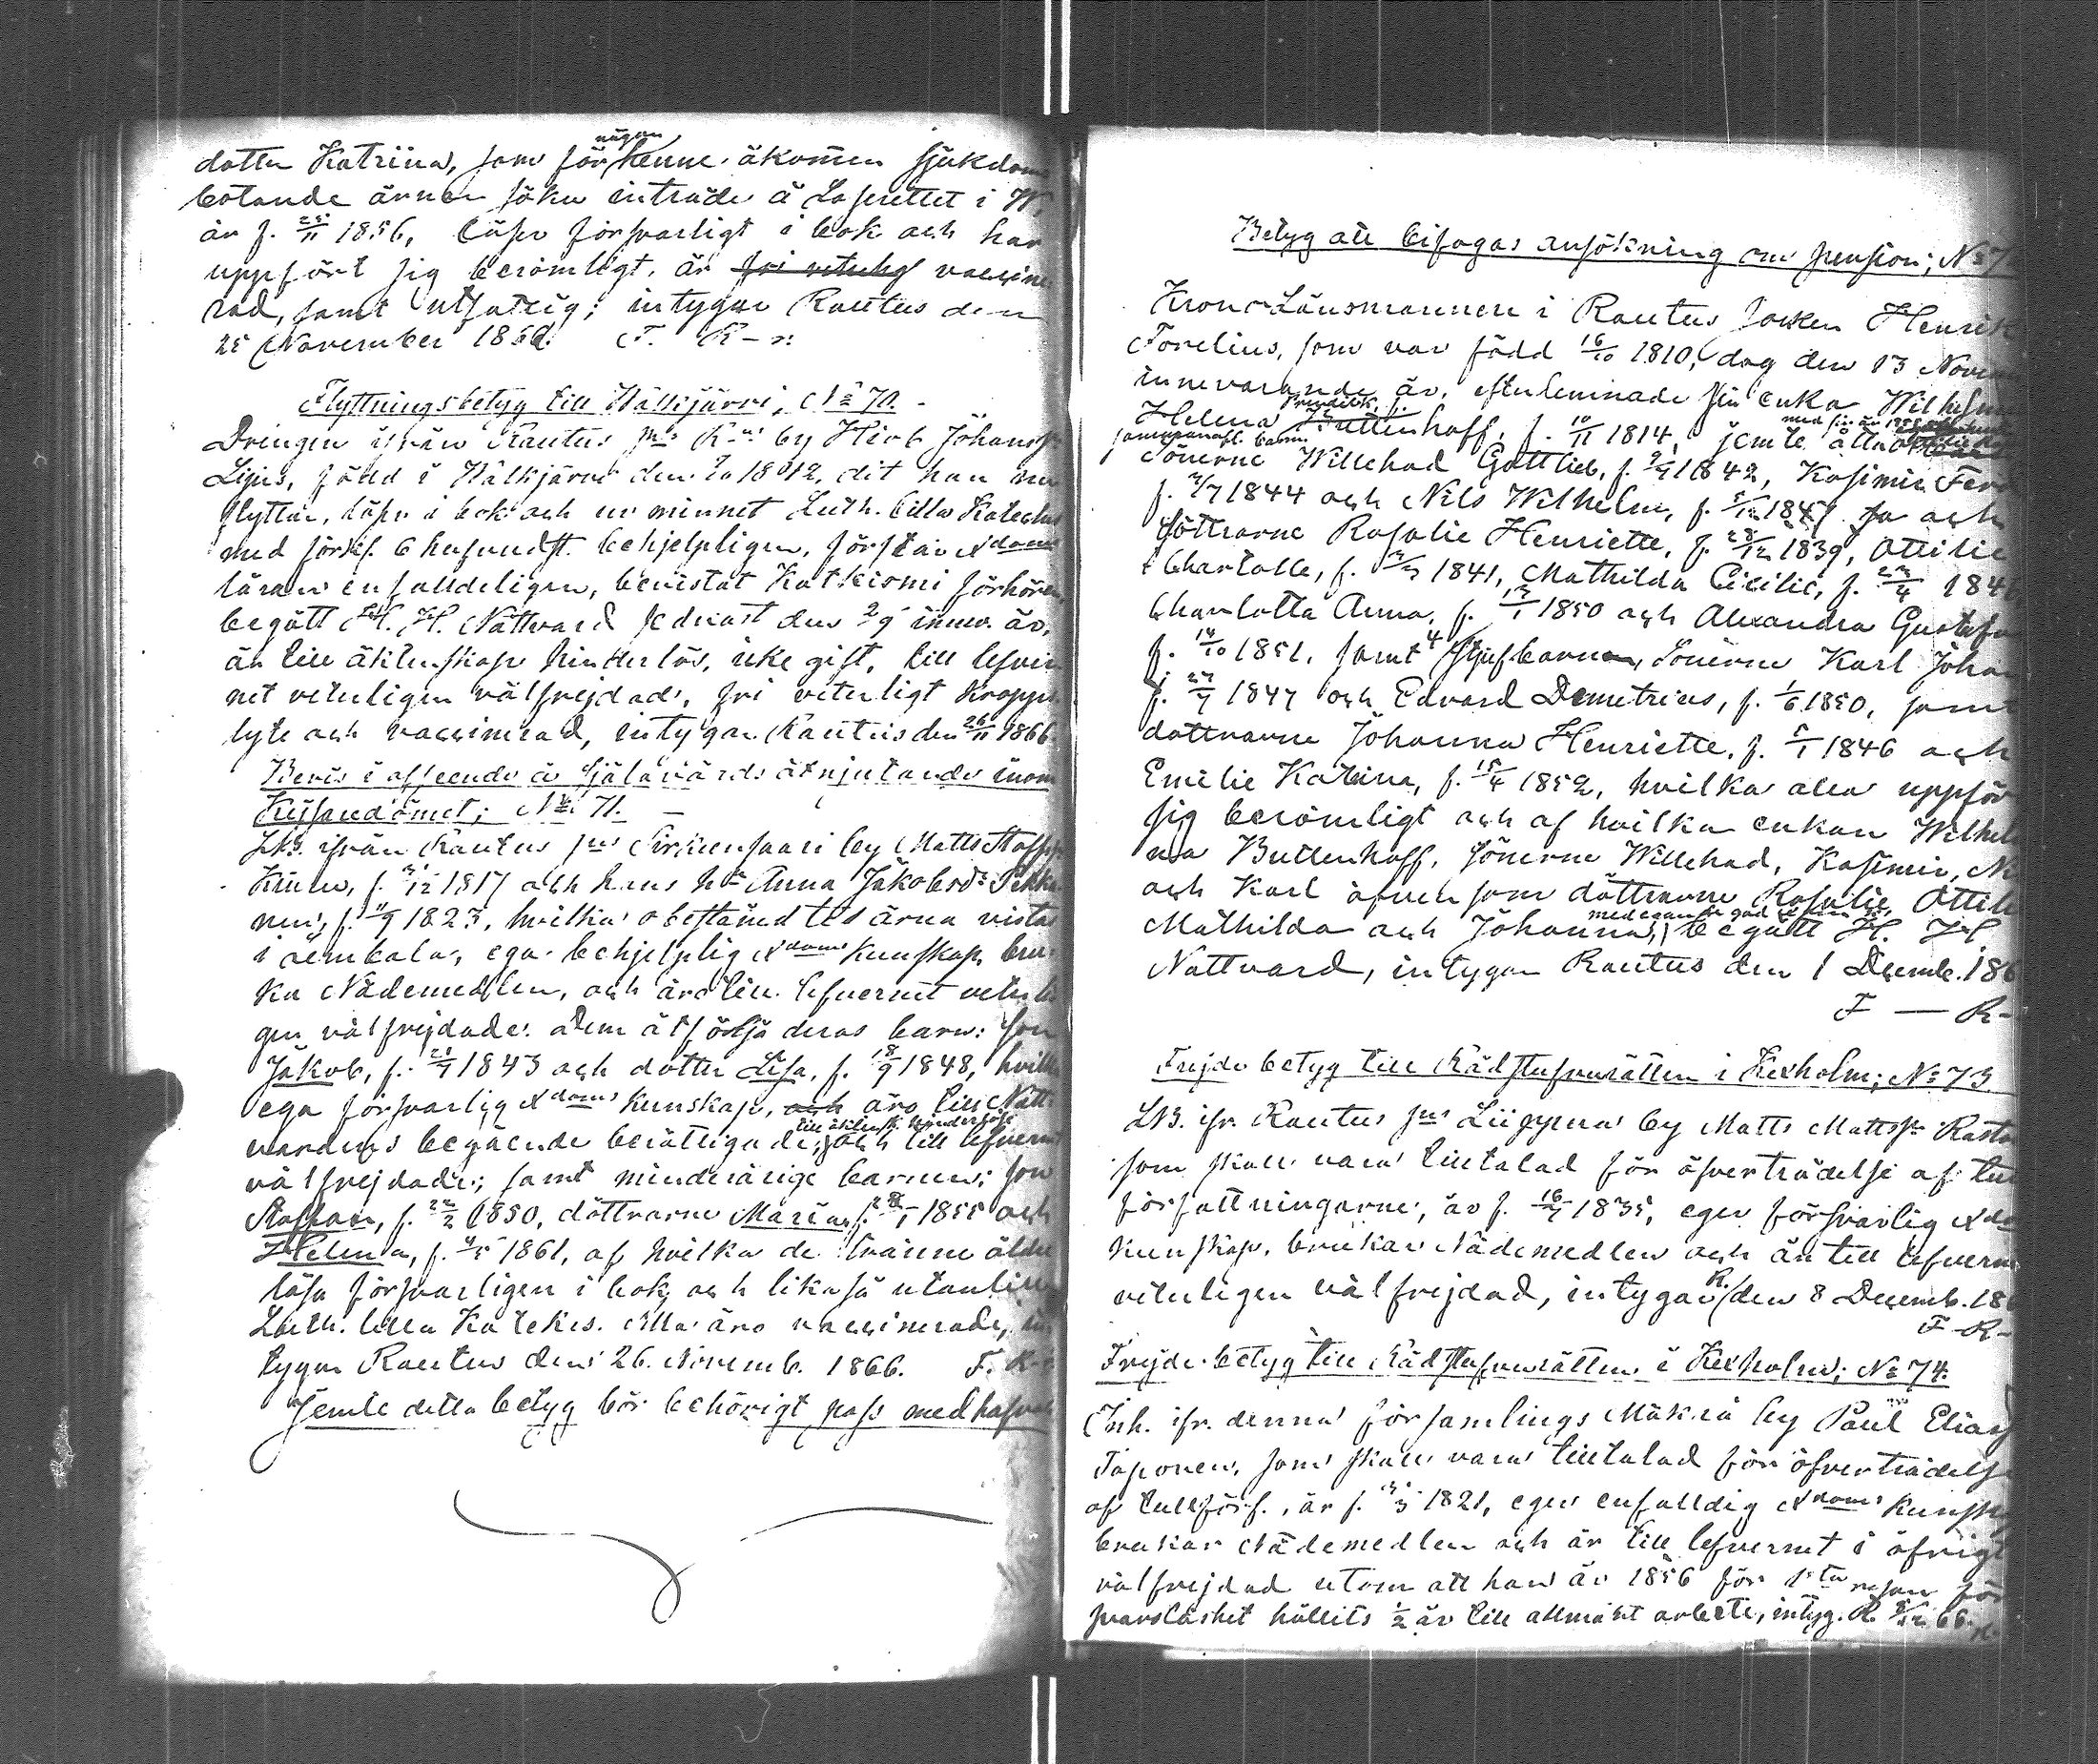 någon
dotter Katriina, som för henne åkommen sjukdoms
botande ärnar söka inträde å Lasarettet i W.
är f. 25/11 1856, läser försvarligt i bok och har
uppfört sig berömligt, är fri veterlig vaccine
rad, samt utfattig; intygar Rautus den
25 November 1866. F. R-n
Flyttningsbetyg till Walkjärvi, No 70.
Drengen ifrån Rautus sns R-us by Johans
Lijus, född i Walkjärvi den 1842, dit han nu
flyttar, läser i bok och ur minnet Luth. lilla Kateches
med förkl. & hufvudst. behjelpligen, förstår Xdoms
läran enfalldeligen, bevistat Katkismi förhören
begått H. H. Nattvard sednast den 2/9 innev. år,
är till äktenskap hinderlös, icke gift, till lefver
net veterligen välfrejdad, fri veterligt kropps
lyte och vaccinerad, intygar Rautus den 26/11 1866.
Bevis i afseende å själavårds åtnjutande inom
Kejsaredömet; No 71.
LB. ifrån Rautus sns by Matts Staffss
f. /12 1817 och hans hu Anna Jakobsdr
nen, f. /9 1823, hvilka obestämd tid ärna vistas
i aembala, ega behjelplig Xdoms kunskap, bru-
ka Nådemedlen, och äro till lefvernet veterli
gen välfrejdade. Dem åtfölja deras barn: son
Jakob, f. 21/7 1843 och dotter Lisa, f. 18/9 1848, hvilka
ega försvarlig Xdoms kunskap, och äro till Natt-
till äktensk. hinderlösa
vardens begående berättigade, och till lefvernet
välfrejdade; samt minderårige barnen: son
Staffan, f. 22/2 1850, döttrarne Maria, f. 1855 och
Helena, f. 4/5 1861, af hvilka de tvänne äldre
läsa försvarligen i bok och likaså utantill
Luth. lilla Katekis. Alla äro vaccinerade, in
tygar Rautus den 26. Novemb. 1866. F. R-
Jemte detta betyg bör behörigt pass medhafvas
Betyg att bifogas ansökning om pension; No 7
Krono-Länsmannen i Rautus socken Henrik
Forelius, som var född 16/10 1810, dog den 13 Novem
innevarande år, efterlemnade sin enka Wilhelmi
Helena Fredrik. f. Buttenhoff, f. 10/11 1814, jemte åtta
med sin år 1852
sammanafl. barn.
Sönerne Willehad Gottlieb, f. 2/9 1842, Kasimir Ferd
f. 2/7 1844 och Nils Wilhelm, f. 5/12 1847 och
döttrarne Rosalie Henriette, f. 28/12 1839, Ottilie
Charlotte, f. 3/3 1841, Mathilda Cicilie, f. 23/4 184
Charlotta Anna, f. 13/1 1850 och Alexandra Gustafva
f. 14/10 1851, samt 4 styfbarn, Sönerne Karl Johan
f. 27/7 1847 och Edvard Demetrius, f. 1/6 1850, samt
döttrarne Johanna Henriette, f. 5/1 1846 och
Emilie Katrina, f. 15/4 1852, hvilka alla uppför
sig berömligt och af hvilka enkan Wilhel
na Buttenhoff, sönerne Willehad, Kasimir, Ni
och Karl äfvensom döttrarne Rosalie, Ottili
med egande god
Mathilda och Johanna, begått H. H.
Nattvard, intygar Rautus den 1 Decemb. 186
F — R-
Frejde betyg till Rådstufvurätten i Kexholm; No 73
LB. ifr. Rautus sns by Matts Mattss
som skall vara tilltalad för öfverträdelse af tul
författningarne, är f. 16/ 1835, eger försvarlig Xdo
kunskap, brukar Nådemedlen och är till lefverne
veterligen välfrejdad, intygar R. den 8 Decemb. 186
F-R-
Frejde-betyg till Rådstufvurätten i Kexholm; No 74.
Inh. ifr. denna församlings Mäkrä by Paul Elias
Taponen, som skall vara tilltalad för öfverträdelse
af tullförf., är f. /3 1821, eger enfalldig Xdoms kunsk
brukar Nådemedlen och är till lefvernet i öfrigt
välfrejdad utom att han år 1856 för 1sta resan för
svarslöshet hållits ½ år till allmänt arbete, intyg. R. 8/12 66.